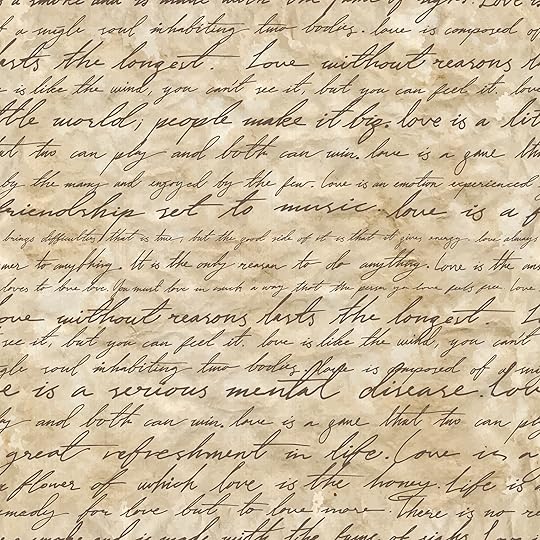 a smoke and is made with the fume of sighs. Love is
of a single soul inhabiting two bodies. love is composed of
lasts the longest. Love without reasons l
is like the wind, you can't see it, but you can feel it. love
little world; people make it big. love is a lit
that two can play and both can win. love is a game tha
by the many and enjoyed by the few. Love is an emotion experienced
friendship set to music. love is a f
brings difficulties, that is true, but the good side of it is that it gives energy. love always
answer to anything. It is the only reason to do anything. Love is the ans
loves to love love. You must love in such a way that the person you love feels free. Love
love without reasons lasts the longest. L
see it, but you can feel it. love is like the wind, you can't
single soul inhabiting two bodies. Love is composed of a sin
love is a serious mental disease. Lov
play and both can win. love is a game that two can pl
great refreshment in life. Love is a
a flower of which love is the honey. Life is a
remedy for love but to love more. There is no re
smoke and is made with the fume of sighs. Love